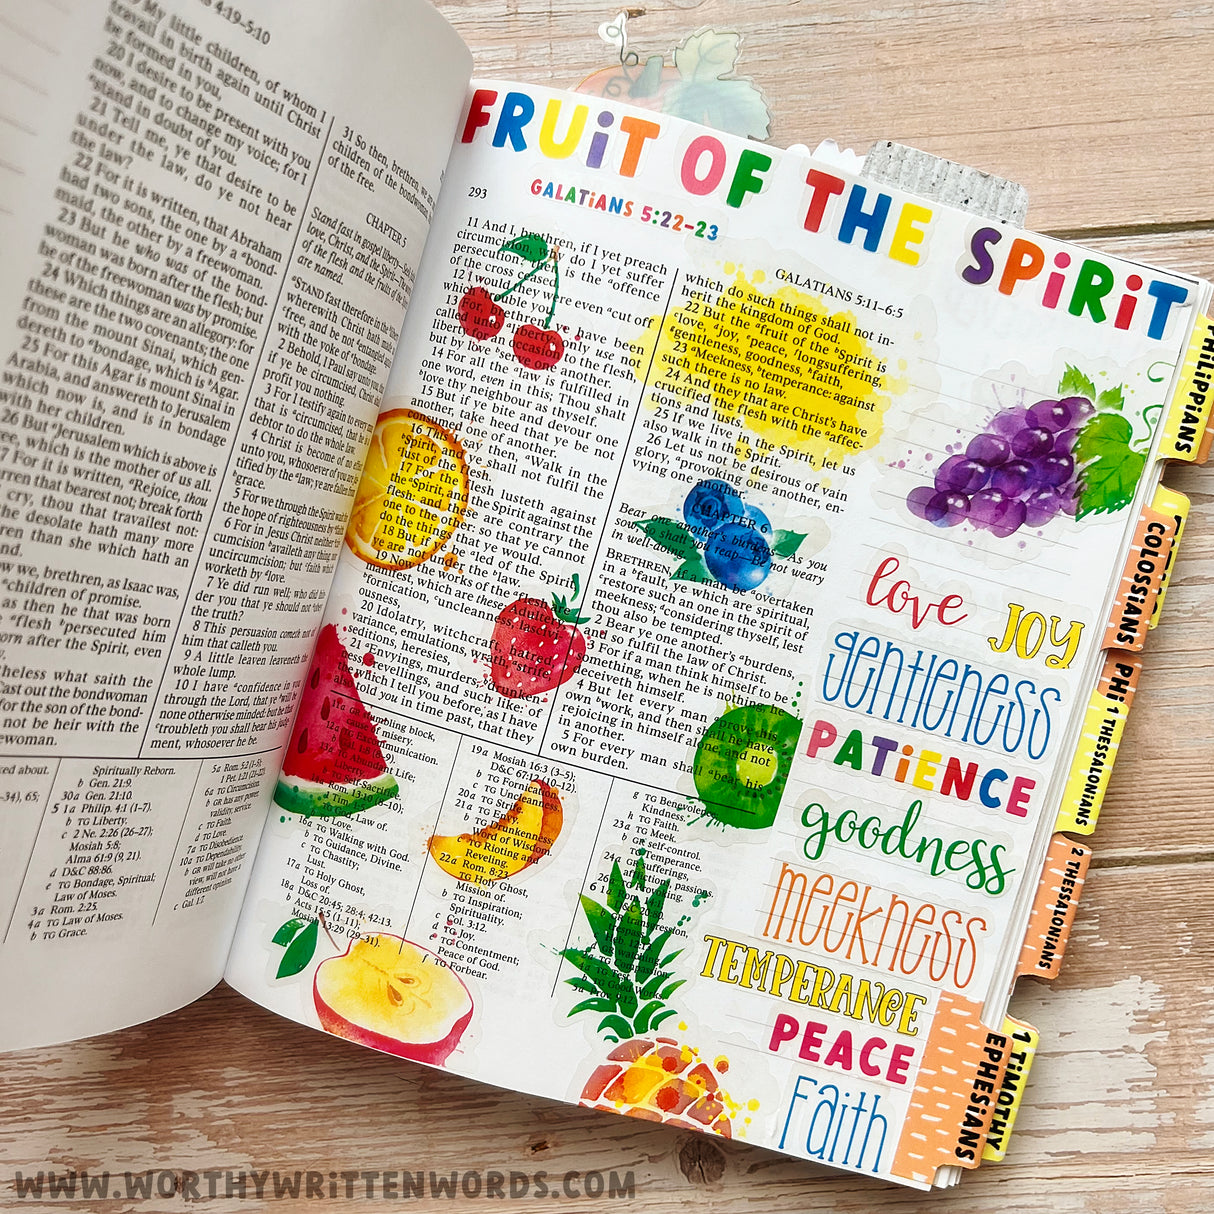 4:19–5:10
My little children, of whom I
travail in birth again until Christ
be formed in you,
20 I desire to be present with you
now, and to change my voice; for I
stand in doubt of you.
21 Tell me, ye that desire to be
under the law, do ye not hear
the law?
22 For it is written, that Abraham
had two sons, the one by a bond-
maid, the other by a freewoman.
23 But he who was of the bond-
woman was born after the flesh; but
he of the freewoman was by promise.
24 Which things are an allegory: for
these are the two covenants; the one
from the mount Sinai, which gen-
dereth to bondage, which is Agar.
25 For this Agar is mount Sinai in
Arabia, and answereth to Jerusalem
which now is, and is in bondage
with her children.
26 But Jerusalem which is above is
free, which is the mother of us all.
27 For it is written, Rejoice, thou
barren that bearest not; break forth
cry, thou that travailest not:
the desolate hath many more
children than she which hath an
now we, brethren, as Isaac was,
children of promise.
as then he that was born
flesh persecuted him
born after the Spirit, even
what saith the
Cast out the bondwoman
for the son of the bond-
not be heir with the
31 So then, brethren, we
children of the bondwoman
of the free.
CHAPTER 5
Stand fast in gospel liberty—
love, Christ, and the Spirit—
of the flesh and the fruits of the
are named.
STAND fast therefore in the
wherewith Christ hath made
free, and be not entangled
with the yoke of bondage.
2 Behold, I Paul say unto you,
if ye be circumcised, Christ
profit you nothing.
3 For I testify again to every
that is circumcised, that he is
debtor to do the whole law.
4 Christ is become of no effect
unto you, whosoever of you are
tified by the law; ye are fallen
grace.
5 For we through the Spirit wait
the hope of righteousness by
6 For in Jesus Christ neither
cumcision availeth any thing,
uncircumcision; but faith which
worketh by love.
7 Ye did run well; who did hin-
der you that ye should not obey
the truth?
8 This persuasion cometh not of
him that calleth you.
9 A little leaven leaveneth the
whole lump.
10 I have confidence in you
through the Lord, that ye will be
none otherwise minded: but he that
troubleth you shall bear his judg-
ment, whosoever he be.
Spiritually Reborn.
b Gen. 21:9.
30a Gen. 21:10.
5 1a Philip. 4:1 (1–7).
b TG Liberty.
c 2 Ne. 2:26 (26–27);
Mosiah 5:8;
Alma 61:9 (9, 21).
d D&C 88:86.
e TG Bondage, Spiritual;
Law of Moses.
3a Rom. 2:25.
4a TG Law of Moses.
b TG Grace.
5a Rom. 5:2 (1–5);
1 Pet. 1:21 (21–22).
6a TG Circumcision.
b GR has any power,
validity, service.
c TG Faith.
d TG Love.
7a TG Disobedience.
10a TG Dependability.
b GR will take no other
view; will not have a
different opinion.
c Gal. 1:7.
FRUiT OF THE SPiRiT
GALATiANS 5:22–23
293
GALATIANS 5:11–6:5
11 And I, brethren, if I yet preach
circumcision, why do I yet suffer
persecution? then is the offence
of the cross ceased.
12 I would they were even cut off
which trouble you.
13 For, brethren, ye have been
called unto liberty; only use not
liberty for an occasion to the flesh,
but by love serve one another.
14 For all the law is fulfilled in
one word, even in this; Thou shalt
love thy neighbour as thyself.
15 But if ye bite and devour one
another, take heed that ye be not
consumed one of another.
16 This I say then, Walk in the
Spirit, and ye shall not fulfil the
lust of the flesh.
17 For the flesh lusteth against
the Spirit, and the Spirit against the
flesh: and these are contrary the
one to the other: so that ye cannot
do the things that ye would.
18 But if ye be led of the Spirit,
ye are not under the law.
19 Now the works of the flesh are
manifest, which are these; Adultery,
fornication, uncleanness, lascivi-
ousness,
20 Idolatry, witchcraft, hatred,
variance, emulations, wrath, strife,
seditions, heresies,
21 Envyings, murders, drunken-
ness, revellings, and such like: of
the which I tell you before, as I have
also told you in time past, that they
which do such things shall not in-
herit the kingdom of God.
22 But the fruit of the Spirit is
love, joy, peace, longsuffering,
gentleness, goodness, faith,
23 Meekness, temperance: against
such there is no law.
24 And they that are Christ's have
crucified the flesh with the affec-
tions and lusts.
25 If we live in the Spirit, let us
also walk in the Spirit.
26 Let us not be desirous of vain
glory, provoking one another, en-
vying one another.
CHAPTER 6
Bear one another's burdens—As you
sow, so shall you reap—Be not weary
in well-doing.
BRETHREN, if a man be overtaken
in a fault, ye which are spiritual,
restore such an one in the spirit of
meekness; considering thyself, lest
thou also be tempted.
2 Bear ye one another's burdens,
and so fulfil the law of Christ.
3 For if a man think himself to be
something, when he is nothing, he
deceiveth himself.
4 But let every man prove his
own work, and then shall he have
rejoicing in himself alone, and not
in another.
5 For every man shall bear his
own burden.
11a GR stumbling block,
cause of misery.
12a TG Excommunication.
b Gal. 1:8 (8–9).
13a TG Abundant Life;
TG Self-Sacrifice.
14a Rom. 13:10 (8–10);
1 Tim. 1:5.
TG God, Law of.
TG Love.
16a TG Walking with God.
b TG Guidance, Divine.
c TG Chastity;
Lust.
17a TG Holy Ghost,
Loss of.
18a D&C 20:45; 28:4; 42:13.
b Acts 14:5 (1–11);
Mosiah 13:29 (29–31).
19a Mosiah 16:3 (3–5);
D&C 67:12 (10–12).
b TG Fornication.
c TG Uncleanness.
20a TG Strife.
21a TG Envy.
b TG Drunkenness;
Word of Wisdom.
c TG Rioting and
Reveling.
22a Rom. 8:23.
TG Holy Ghost,
Mission of.
b TG Inspiration;
Spirituality.
c Col. 3:12.
d TG Joy.
e TG Contentment;
Peace of God.
f TG Forbear.
g TG Benevolence;
Kindness.
h TG Faith.
23a TG Meek.
b GR self-control.
TG Temperance.
24a GR sufferings,
afflictions, passions.
26a TG Provoking.
love
JOY
gentleness
PATiENCE
goodness
meekness
TEMPERANCE
PEACE
Faith
PHiLiPPiANS
COLOSSiANS
1 THESSALONiANS
2 THESSALONiANS
1 TiMOTHY
EPHESiANS
WWW.WORTHYWRITTENWORDS.COM